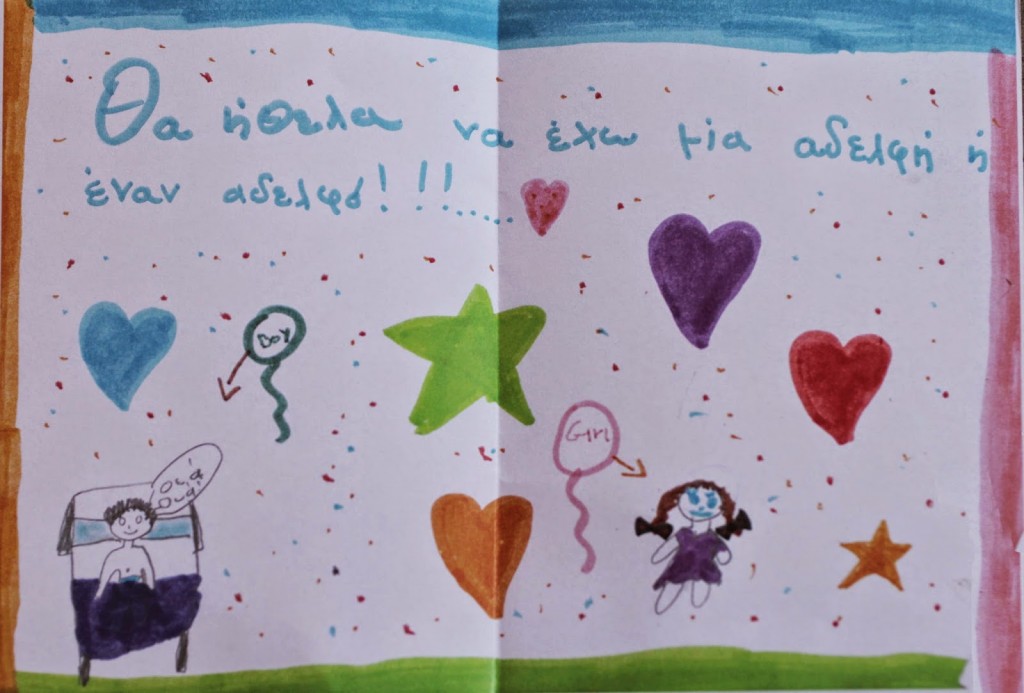 Θα ήθελα να έχω μία αδελφή ή
έναν αδελφό!!!.....
BOY
Girl
Ουά
Ουά!